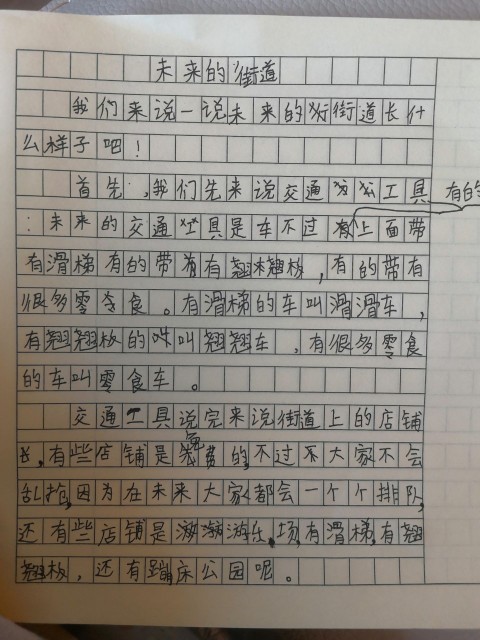 未来的街道
我们来说一说未来的街道长什
么样子吧！
首先，我们先来说交通工具 有的
：未来的交通工具是车不过有上面带
有滑梯有的带有有翘翘板，有的带有
很多零食。有滑梯的车叫滑滑车，
有翘翘板的叫翘翘车，有很多零食
的车叫零食车。
交通工具说完来说街道上的店铺
长，有些店铺是免费的，不过不大家不会
乱抢，因为在未来大家都会一个个排队，
还有些店铺是游乐场，有滑梯，有翘
翘板，还有蹦床公园呢。